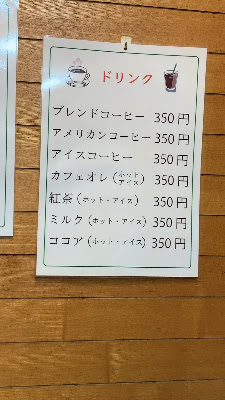 ドリンク
ブレンドコーヒー 350円
アメリカンコーヒー 350円
アイスコーヒー 350円
カフェオレ(ホット アイス) 350円
紅茶(ホット・アイス) 350円
ミルク(ホット・アイス) 350円
ココア(ホット・アイス) 350円